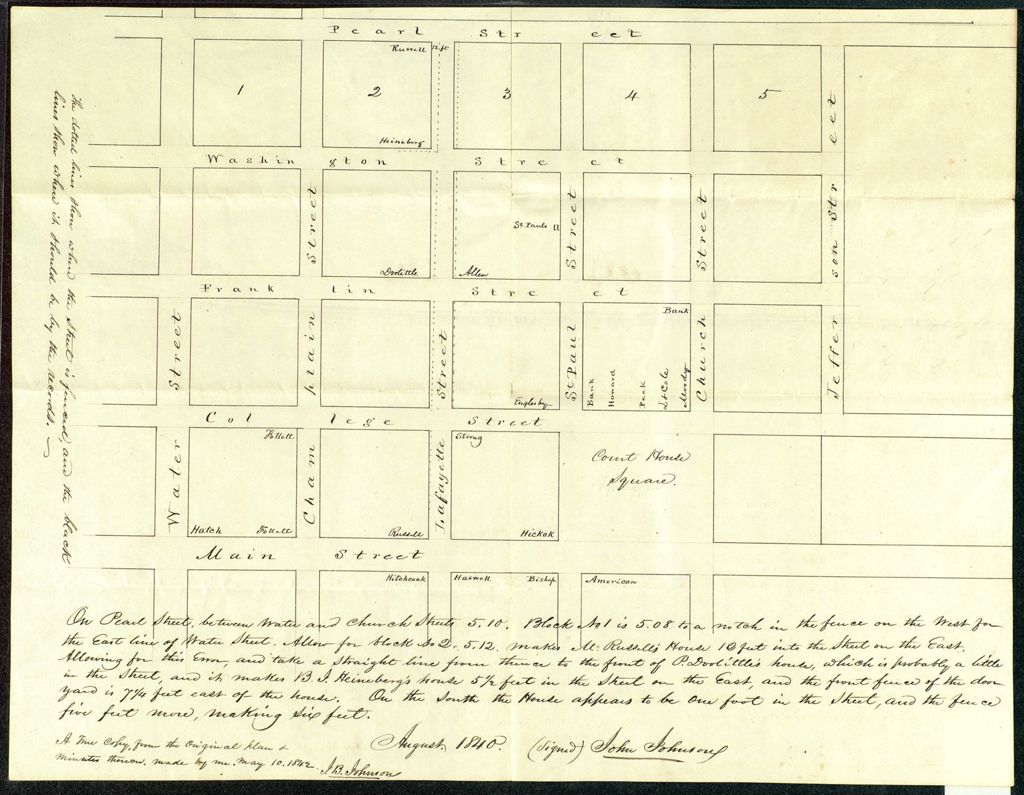 Pearl Street
Russell
12 ft
1
2
3
4
5
Heineberg
Washington Street
Street
St Pauls
Street
Street
Jefferson Street
Doolittle
Allen
Franklin Street
Water Street
Champlain
Lafayette Street
St Paul
Church
Bank
Bank
Howard
Peck
St Cole
Moody
Englesby
College Street
Follett
Strong
Court House
Square.
Hatch
Follett
Russell
Hickok
Main Street
Hitchcock
Haswell
Bishop
American
The doted lines shew where the Street is fenced, and the black
lines shew where it should be by the records.
On Pearl Street, between Water and Church Streets, 5.10. Block No 1 is 5.08 to a notch in the fence on the West for
the East line of Water Street. Allow for block No 2. 5.12. makes Mr Russell's House 12 feet into the Street on the East.
Allowing for this Error, and take a straight line from thence to the front of P. Doolittle's house, which is probably a little
in the Street, and it makes B. J. Heineberg's house 5½ feet in the Street on the East, and the front fence of the door
yard is 7¼ feet east of the house. On the South the House appears to be one foot in the Street, and the fence
five feet more, making Six feet.
August, 1840. (Signed) John Johnson
A True Copy, from the original plan &
minutes thereon, made by me. May 10. 1842
J. B. Johnson